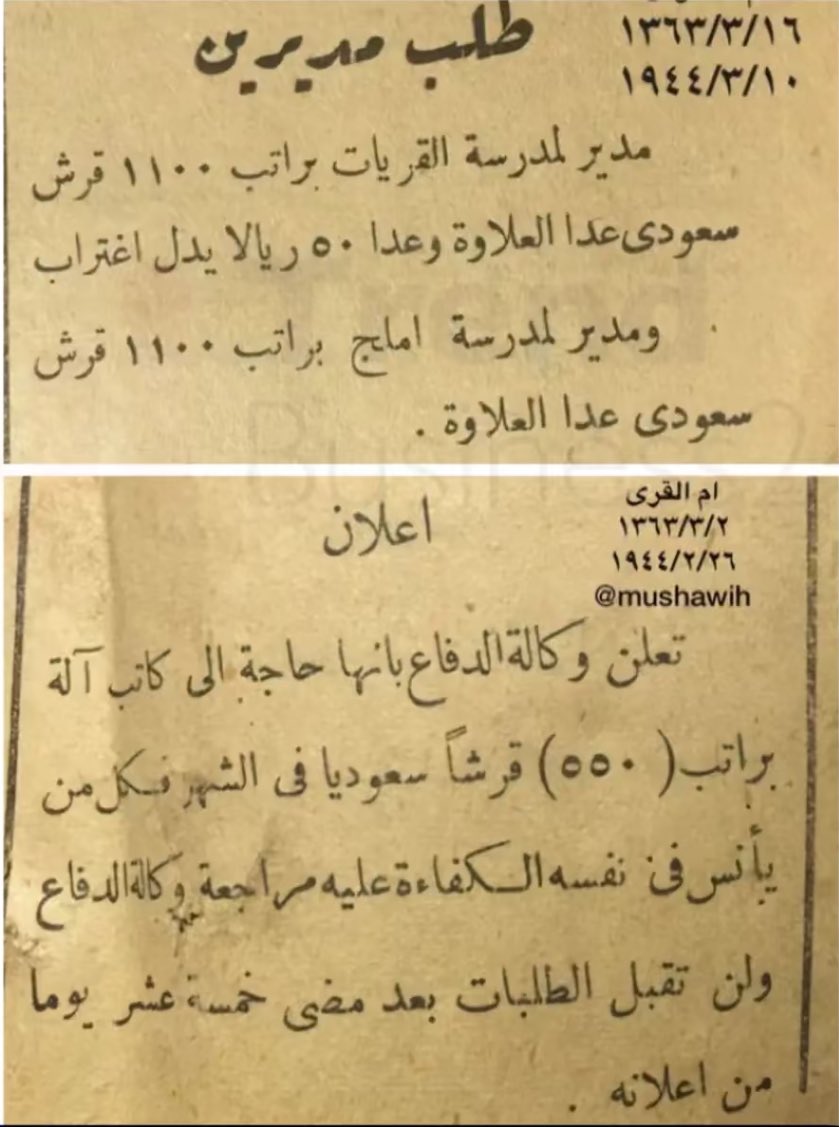 طلب مديرين
١٣٦٣/٣/١٦
١٩٤٤/٣/١٠
مدير لمدرسة القريات براتب ١١٠٠ قرش
سعودى عدا العلاوة وعدا ٥٠ ريالا يدل اغتراب
ومدير لمدرسة املج براتب ١١٠٠ قرش
سعودى عدا العلاوة .
Business
ام القرى
١٣٦٣/٣/٢
١٩٤٤/٢/٢٦
@mushawih
اعلان
تعلن وكالة الدفاع بانها حاجة الى كاتب آلة
براتب (٥٥٠) قرشاً سعوديا فى الشهر فكل من
يأنس فى نفسه الكفاءة عليه مراجعة وكالة الدفاع
ولن تقبل الطلبات بعد مضى خمسة عشر يوما
من اعلانه .